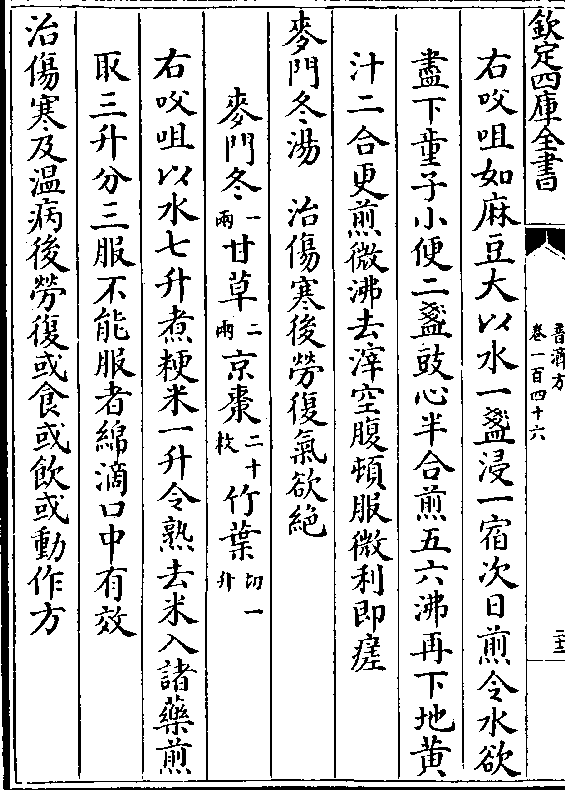 欽定四庫全書
普濟方
卷一百四十六
右㕮咀如麻豆大以水一盞浸一宿次日煎令水欲
盡下童子小便二盞豉心半合煎五六沸再下地黄
汁二合更煎微沸去滓空腹頓服微利即瘥
麥門冬湯　治傷寒後勞復氣欲絶
麥門冬一兩甘草二兩京棗二十枚竹葉切一升
右㕮咀以水七升煮粳米一升令熟去米入諸藥煎
取三升分三服不能服者綿滴口中有效
治傷寒及温病後勞復或食或飲或動作方